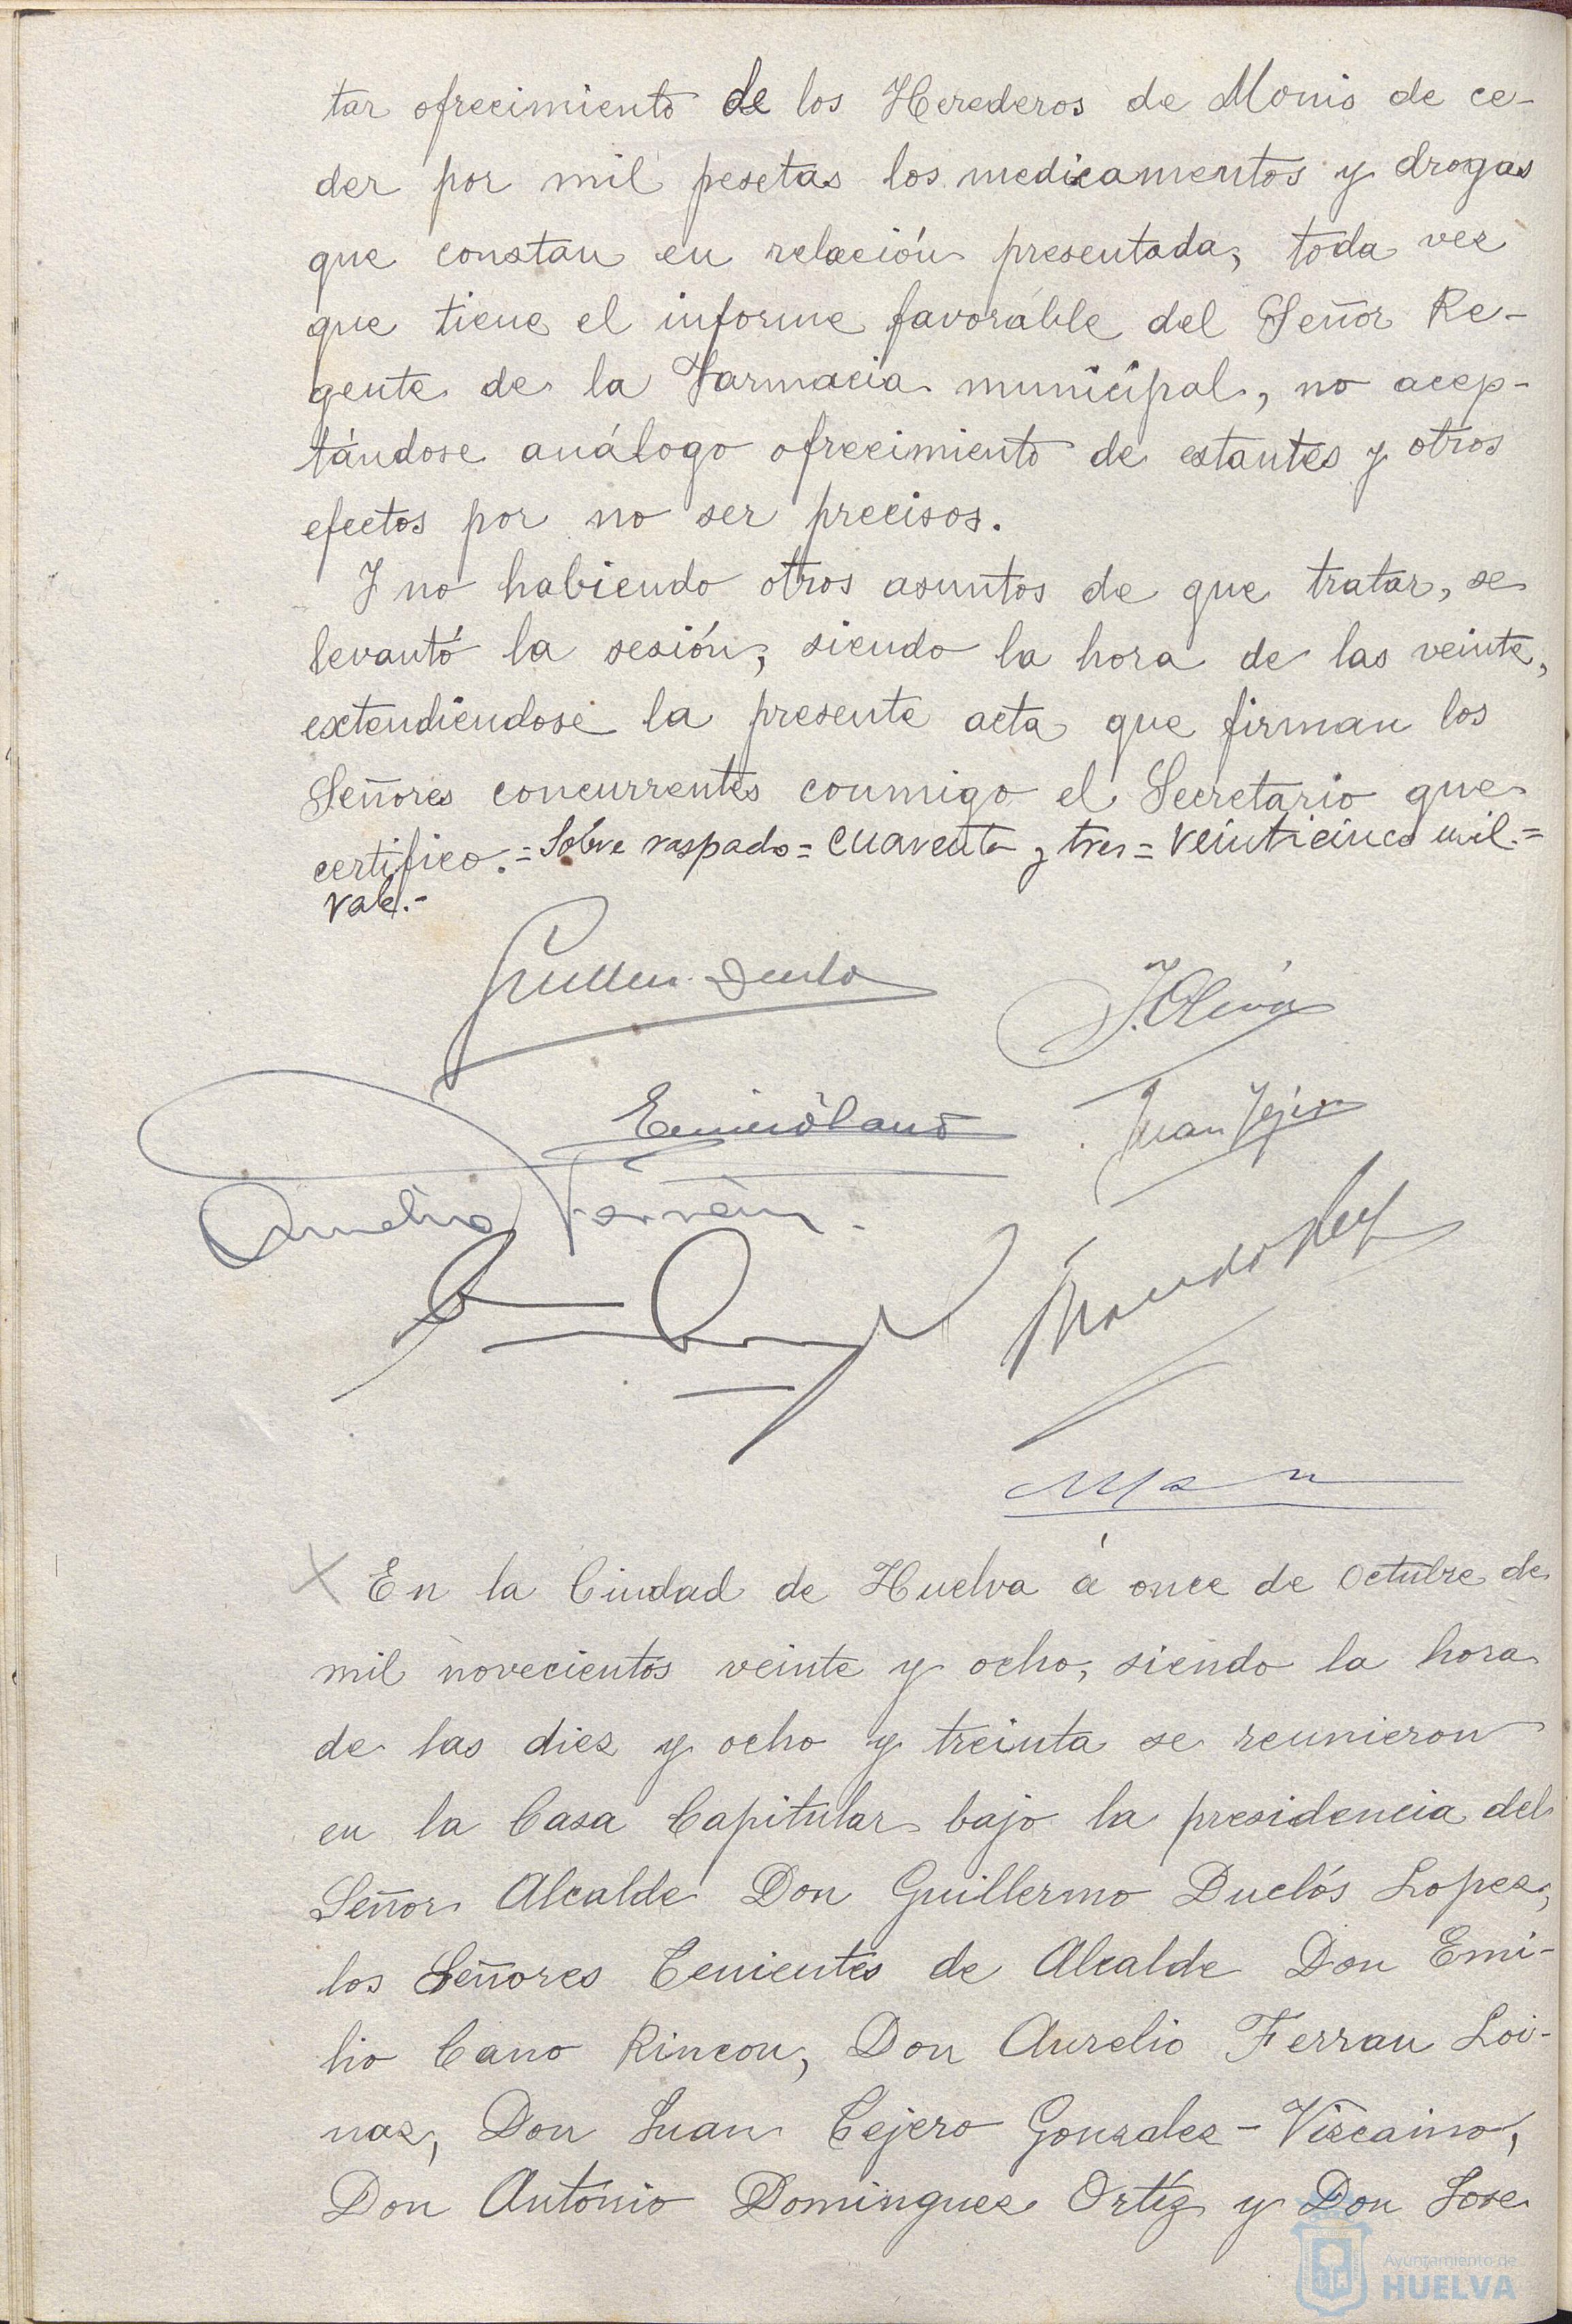 tar ofrecimiento de los Herederos de Monis de ce-
der por mil pesetas los medicamentos y drogas
que constan en relación presentada, toda vez
que tiene el informe favorable del Señor Re-
gente de la Farmacia municipal, no acep-
tándose análogo ofrecimiento de estantes y otros
efectos por no ser precisos.
Y no habiendo otros asuntos de que tratar, se
levantó la sesión, siendo la hora de las veinte,
extendiéndose la presente acta que firman los
Señores concurrentes conmigo el Secretario que
certifico.= Sobre raspado = cuarenta y tres = veinticinco mil.=
vale.-
J. Oliva
Emilio Cano
Juan Tejero
Aurelio Ferran
En la Ciudad de Huelva á once de Octubre de
mil novecientos veinte y ocho, siendo la hora
de las diez y ocho y treinta se reunieron
en la Casa Capitular bajo la presidencia del
Señor Alcalde Don Guillermo Duclós Lopez,
los Señores Tenientes de Alcalde Don Emi-
lio Cano Rincon, Don Aurelio Ferran Loi-
naz, Don Juan Tejero Gonzalez-Vizcaino,
Don Antonio Dominguez Ortíz y Don Jose
Ayuntamiento de
HUELVA